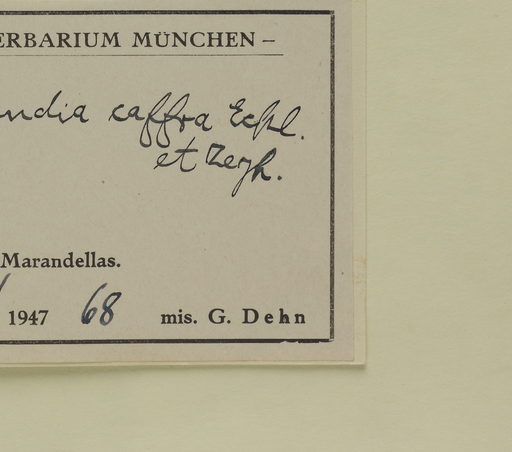 ERBARIUM MÜNCHEN –
ndia caffra Eckl.
et Zeyh.
Marandellas.
1947 68 mis. G. Dehn